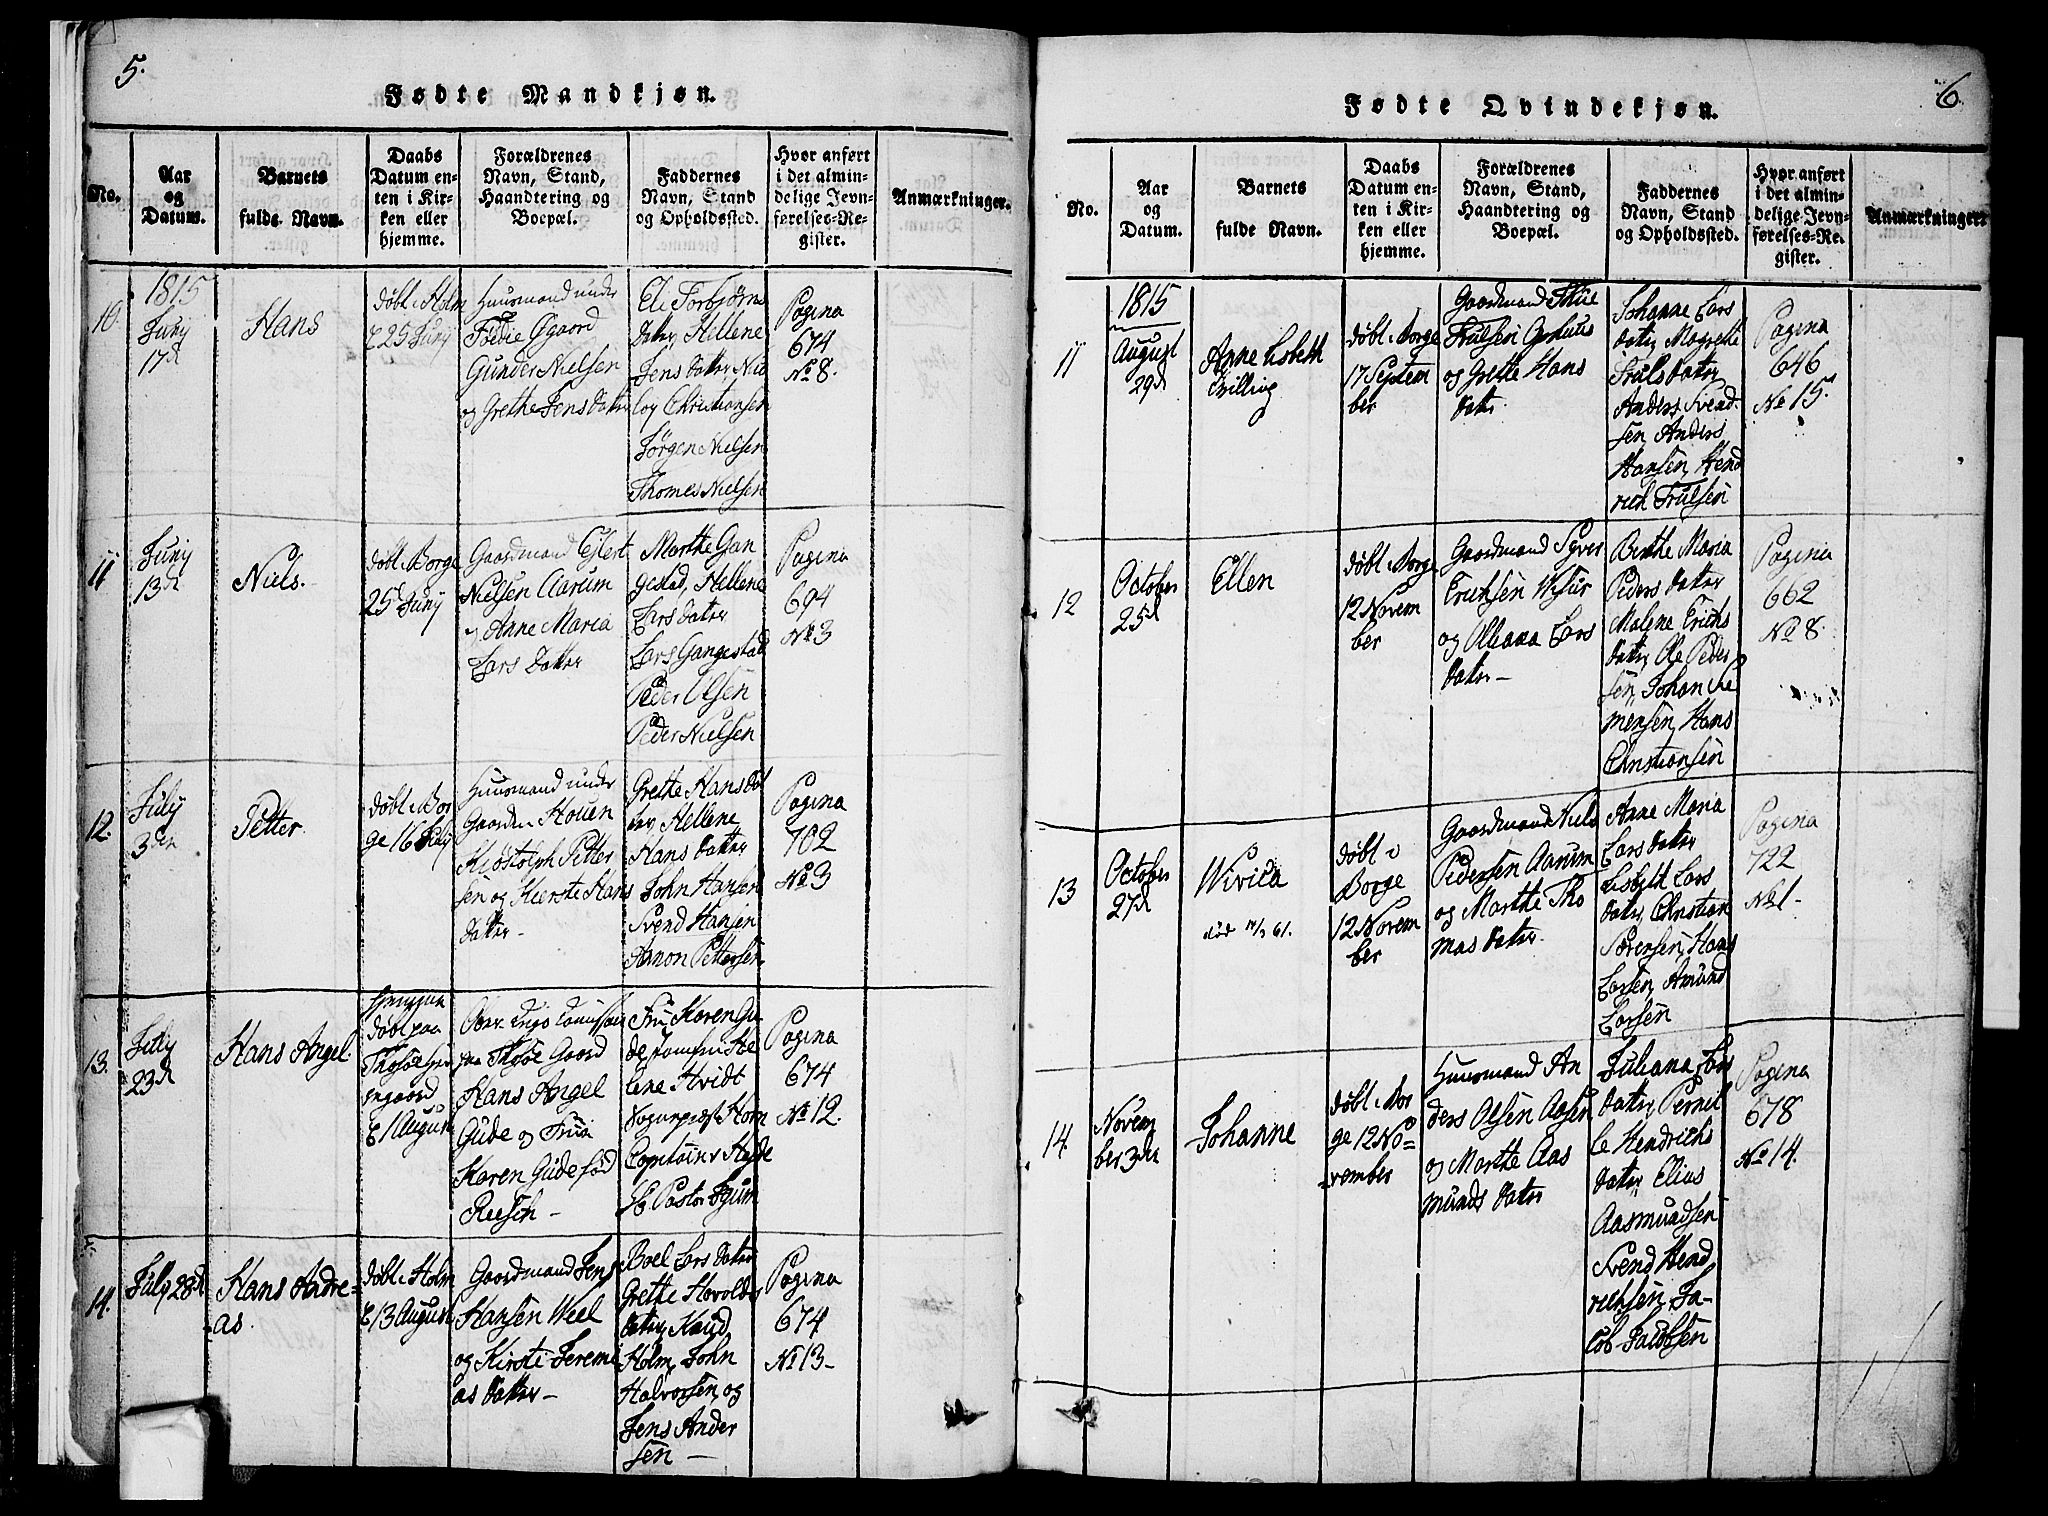 5.
Fødte Mandkjøn.
No.
Aar
og
Datum.
Barnets
fulde Navn.
Daabs
Datum en-
ten i Kir-
ken eller
hjemme.
Forældrenes
Navn, Stand,
Haandtering og
Boepæl.
Faddernes
Navn, Stand
og Opholdssted.
Hvor anført
i det almin-
delige Jevn-
førelses-Re-
gister.
Anmærkninger.
10.
1815
Juny
17d
Hans
døbt i Holm
E 25 Juny
Huusmand under
Ødegaard
Gunder Nielsen
og Grethe Jens datter
Eli Torbjørns
datter, Hellene
Jens datter, Nic
lay Christiansen
Jørgen Nielsen
Thomes Nielsen
Pagina
674
No 8.
11
Juny
13d
Niels.
døbt i Borge
25d Juny
Gaardmand Eylert
Nielsen Aarum
og Anne Maria
Lars datter
Marthe Gan
gestad, Hellene
Lars datter
Lars Gangestad
Peder Olsen
Peder Nielsen
Pagina
694
No 3
12.
July
3die
Petter.
døbt i Bor
ge 16 July
Huusmand under
Gaarden Houen
Kiøstolph Petter
sen og Kierste Hans
datter
Grethe Hans dat
ter, Hellene
Hans datter
John Hansen
Svend Hansen
Amon Pettersen
Pagina
702
No 3
13.
July
23d
Hans Angel.
døbt paa
E 1 August
paa Thosøe Gaard
Hans Angel
Gude og Frue
Karen Gude fød
Reesch
Fru Karen Gu
de, He
lene Hvidt
Capitain Heyde
Pastor Igum
Pagina
674
No 12.
14.
July 28d
Hans Andre=
as.
døbt i Holm
E 13 August
Gaardmand Jens
Hansen Weel
og Kirsti Jeremi
as datter
Boel Lars datter
Grethe Harolds
datter, Knud
Holm, John
Halvorsen, og
Jens Ander
sen
Pagina
674
No 13
6
Fødte Qvindekjøn.
No.
Aar
og
Datum.
Barnets
fulde Navn.
Daabs
Datum en-
ten i Kir-
ken eller
hjemme.
Forældrenes
Navn, Stand,
Haandtering og
Boepæl.
Faddernes
Navn, Stand
og Opholdssted.
Hvor anført
i det almin-
delige Jevn-
førelses-Re-
gister.
Anmærkninger.
11
1815
August
29d
Anne Lisbeth
Tvilling
døbt Borge
17 Septem
ber
Gaardmand Thue
Trulsen
og Grethe Hans
datter
Johanne Lars
datter, Magrethe
Truls datter
Anders Svend
sen, Anders
Hansen, Hend
rich Trulsen
Pagina
646
No 15.
12
October
25d
Ellen
døbt Borge
12 Novem
ber
Gaardmand Syver
Erichsen Wisur
og Oleana Lars
datter
Birthe Maria
Peders datter
Malene Erichs
datter, Ole Peder
sen, Johan Cle
mensen, Hans
Christiansen
Pagina
662
No 8.
13
October
27d
Wivica
død 17/3 61.
døbt i
Borge
12 Novem
ber
Gaardmand Niels
Pedersen Aarum
og Marthe Tho
mas datter.
Anne Maria
Lars datter
Lisbeth Lars
datter, Christian
Sørensen, Hans
Larsen, Amund
Larsen
Pagina
722
No 1
14.
Novem
ber 3die
Johanne
døbt i Bor
ge 12 No=
vember
Huusmand An
ders Olsen Aasen
og Marthe Aas
munds datter
Juliana Lars
datter, Pernil
le Hendrichs
datter, Elias
Aasmundsen
Svend Hend
richsen, Ja-
cob Jacobsen
Pagina
678
No 14.